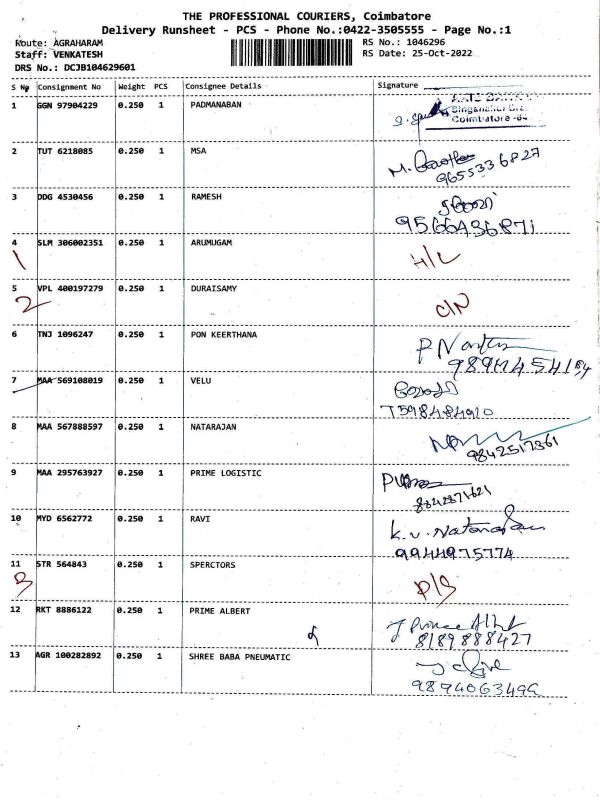 THE PROFESSIONAL COURIERS, Coimbatore
Delivery Runsheet - PCS - Phone No.:0422-3505555 - Page No.:1
Route: AGRAHARAM RS No.: 1046296
Staff: VENKATESH RS Date: 25-Oct-2022
DRS No.: DCJB104629601
S No Consignment No Weight PCS Consignee Details Signature
1 GGN 97904229 0.250 1 PADMANABAN
Coimbatore -64
2 TUT 6218085 0.250 1 MSA
9655336827
3 DDG 4530456 0.250 1 RAMESH
9566436871
4 SLM 306002351 0.250 1 ARUMUGAM H/L
1
5 VPL 400197279 0.250 1 DURAISAMY C/N
2
6 TNJ 1096247 0.250 1 PON KEERTHANA
7 MAA 569108019 0.250 1 VELU
7598484910
8 MAA 567888597 0.250 1 NATARAJAN
9842517361
9 MAA 295763927 0.250 1 PRIME LOGISTIC
8842871621
10 MYD 6562772 0.250 1 RAVI K.V. Natarajan
9944975774
11 STR 564843 0.250 1 SPERCTORS D/S
3
12 RKT 8886122 0.250 1 PRIME ALBERT J Prince Albt
8189888427
13 AGR 100282892 0.250 1 SHREE BABA PNEUMATIC
9894063499